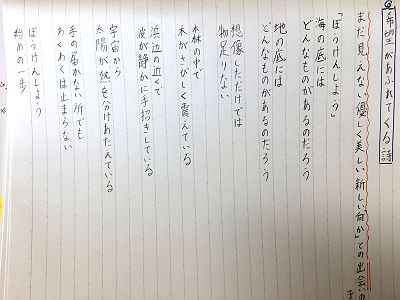 希望があふれてくる詩
まだ見えない優しく美しい新しい「何か」との出会いの
「ぼうけんしよう」
海の底には
どんなものがあるのだろう
地の底には
どんなものがあるのだろう
想像しただけでは
物足りない
木林の中で
木がさびしく震えている
浜辺の近くで
波が静かに手招きしている
宇宙から
太陽が熱を分けあたえている
手の届かない所でも
わくわくは止まらない
ぼうけんしよう
始めの一歩